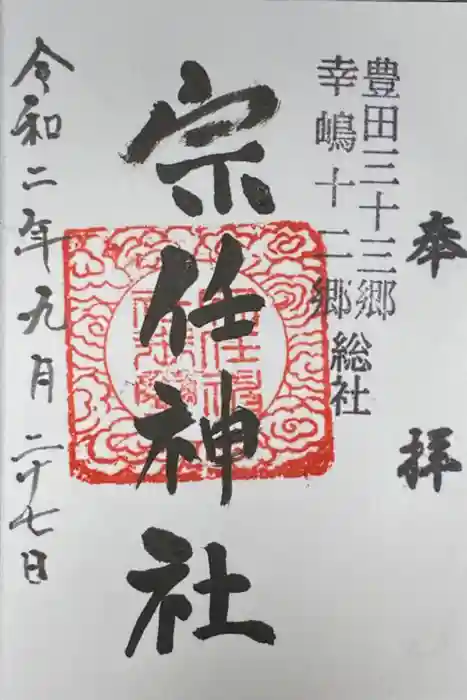 奉拝
豊田三十三郷
幸嶋十二郷総社
宗任神社
令和二年九月二十七日